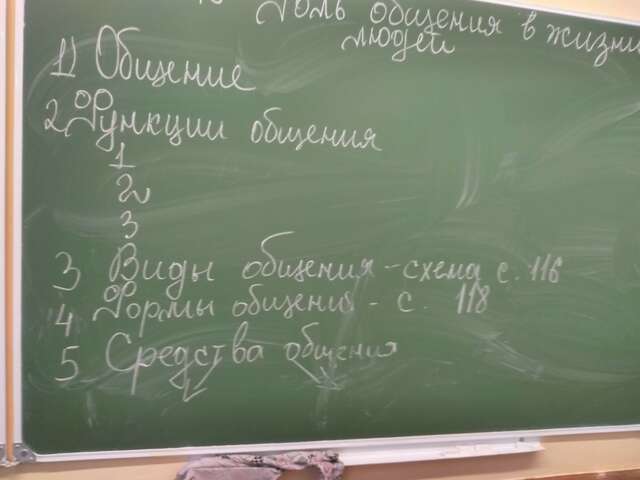 Роль общения в жизни
людей
1) Общение
2. Функции общения
1
2
3
3 Виды общения - схема с. 116
4 Формы общения - с. 118
5 Средства общения